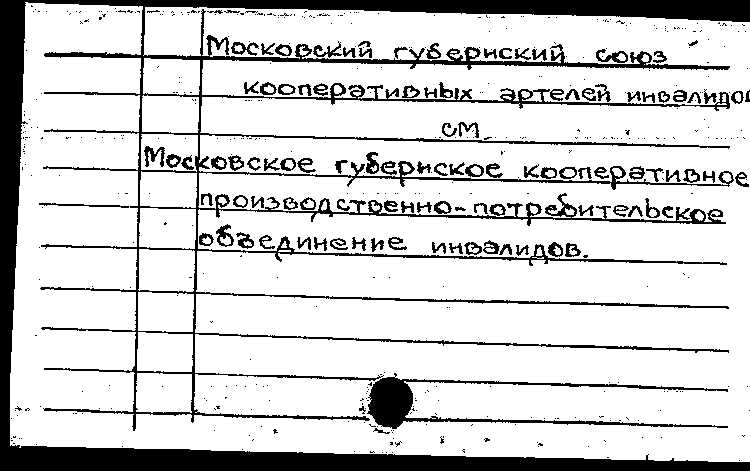 Московский губернский союз
кооперативных артелей инвалидов
см
Московское губернское кооперативное
производственно-потребительское
объединение инвалидов.